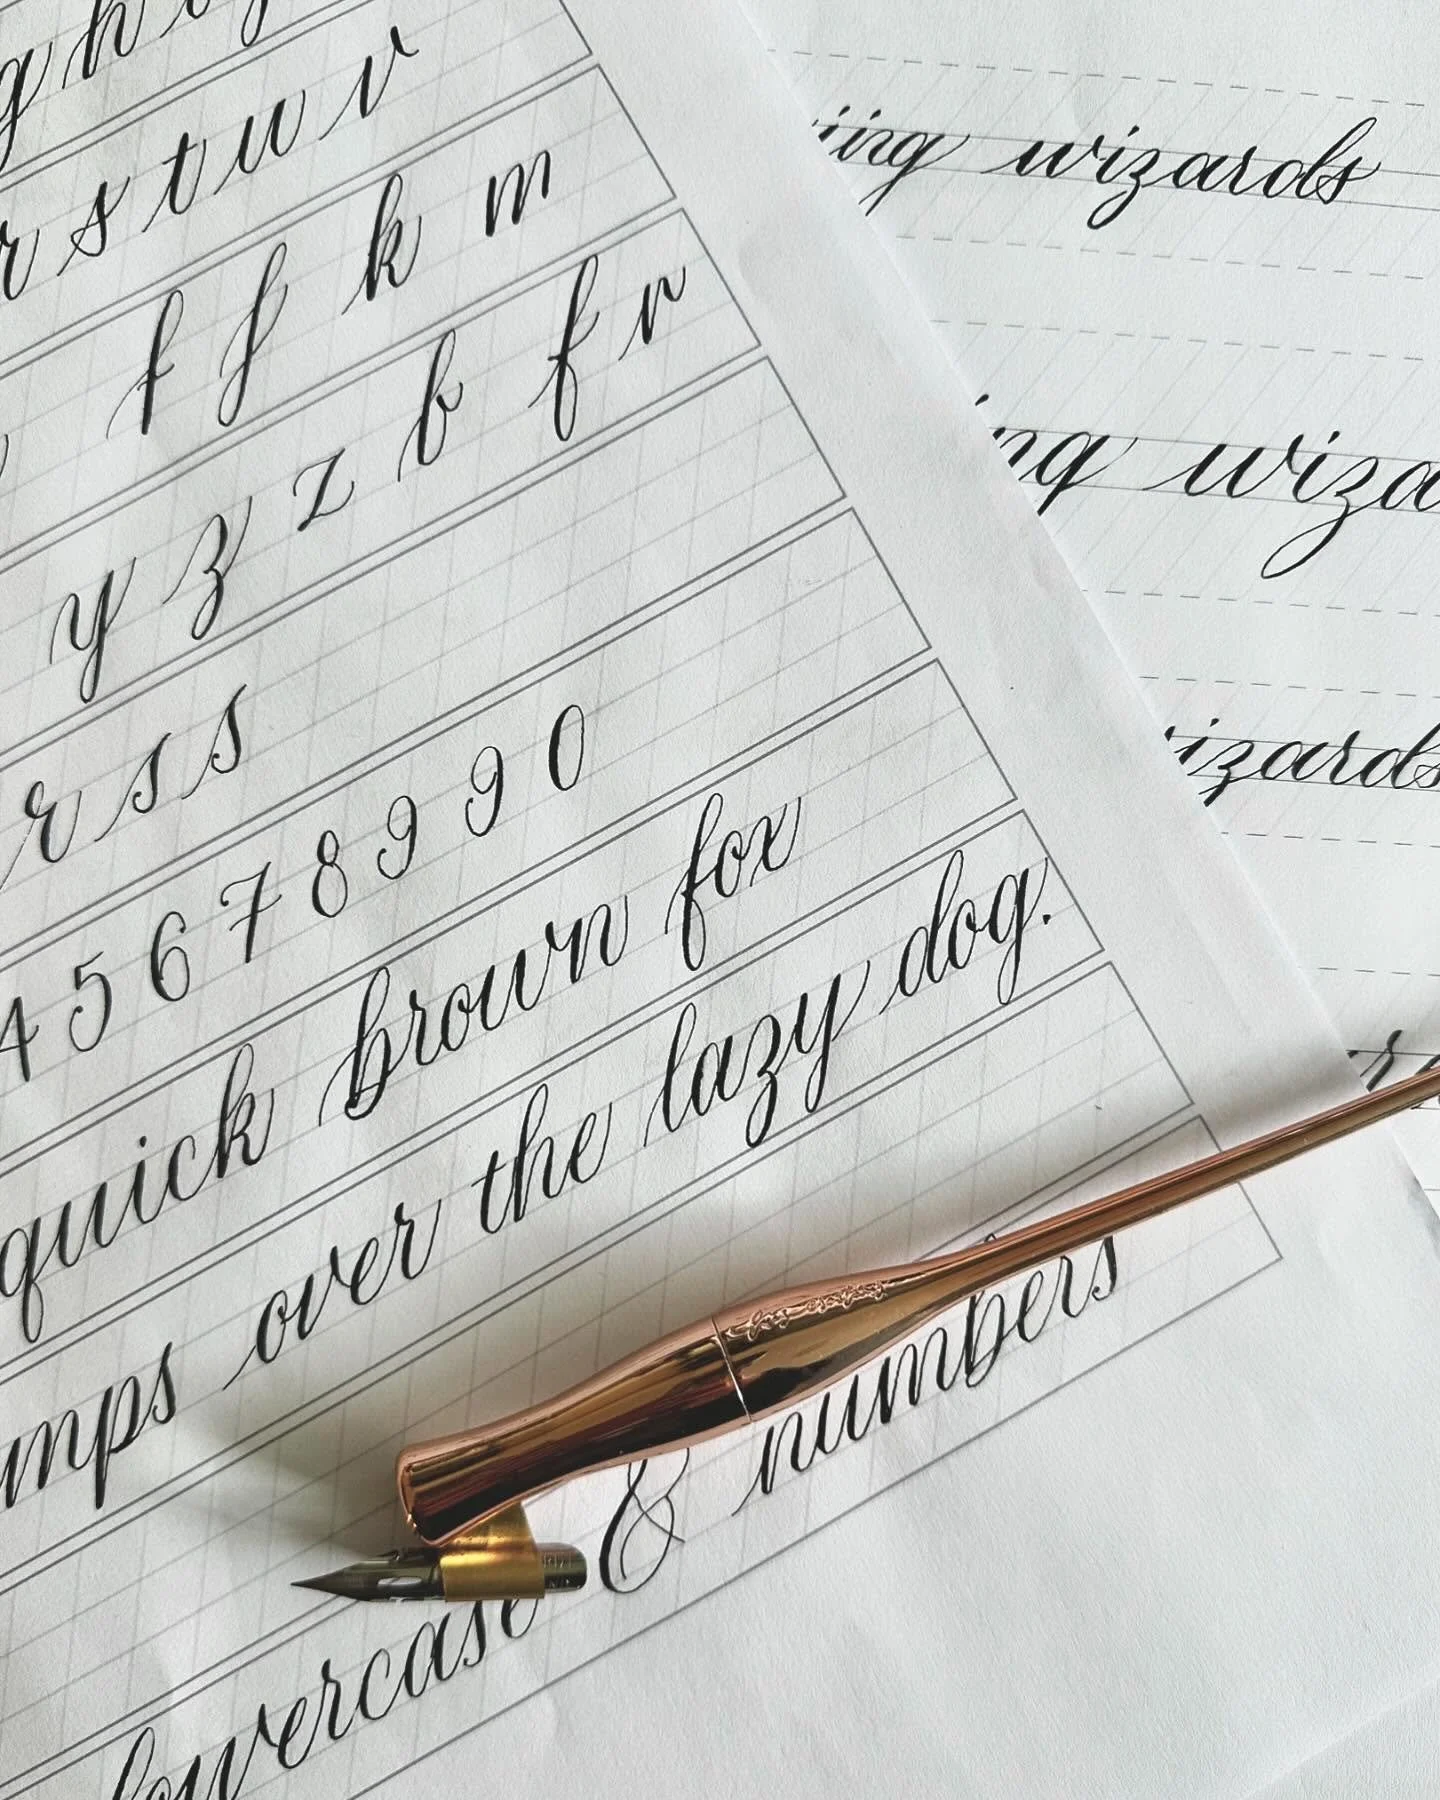 g h
r s t u v
f f k m
y z z b f r
r s s
4 5 6 7 8 9 9 0
quick brown fox
mps over the lazy dog.
lowercase & numbers
wizards
wiza
izards